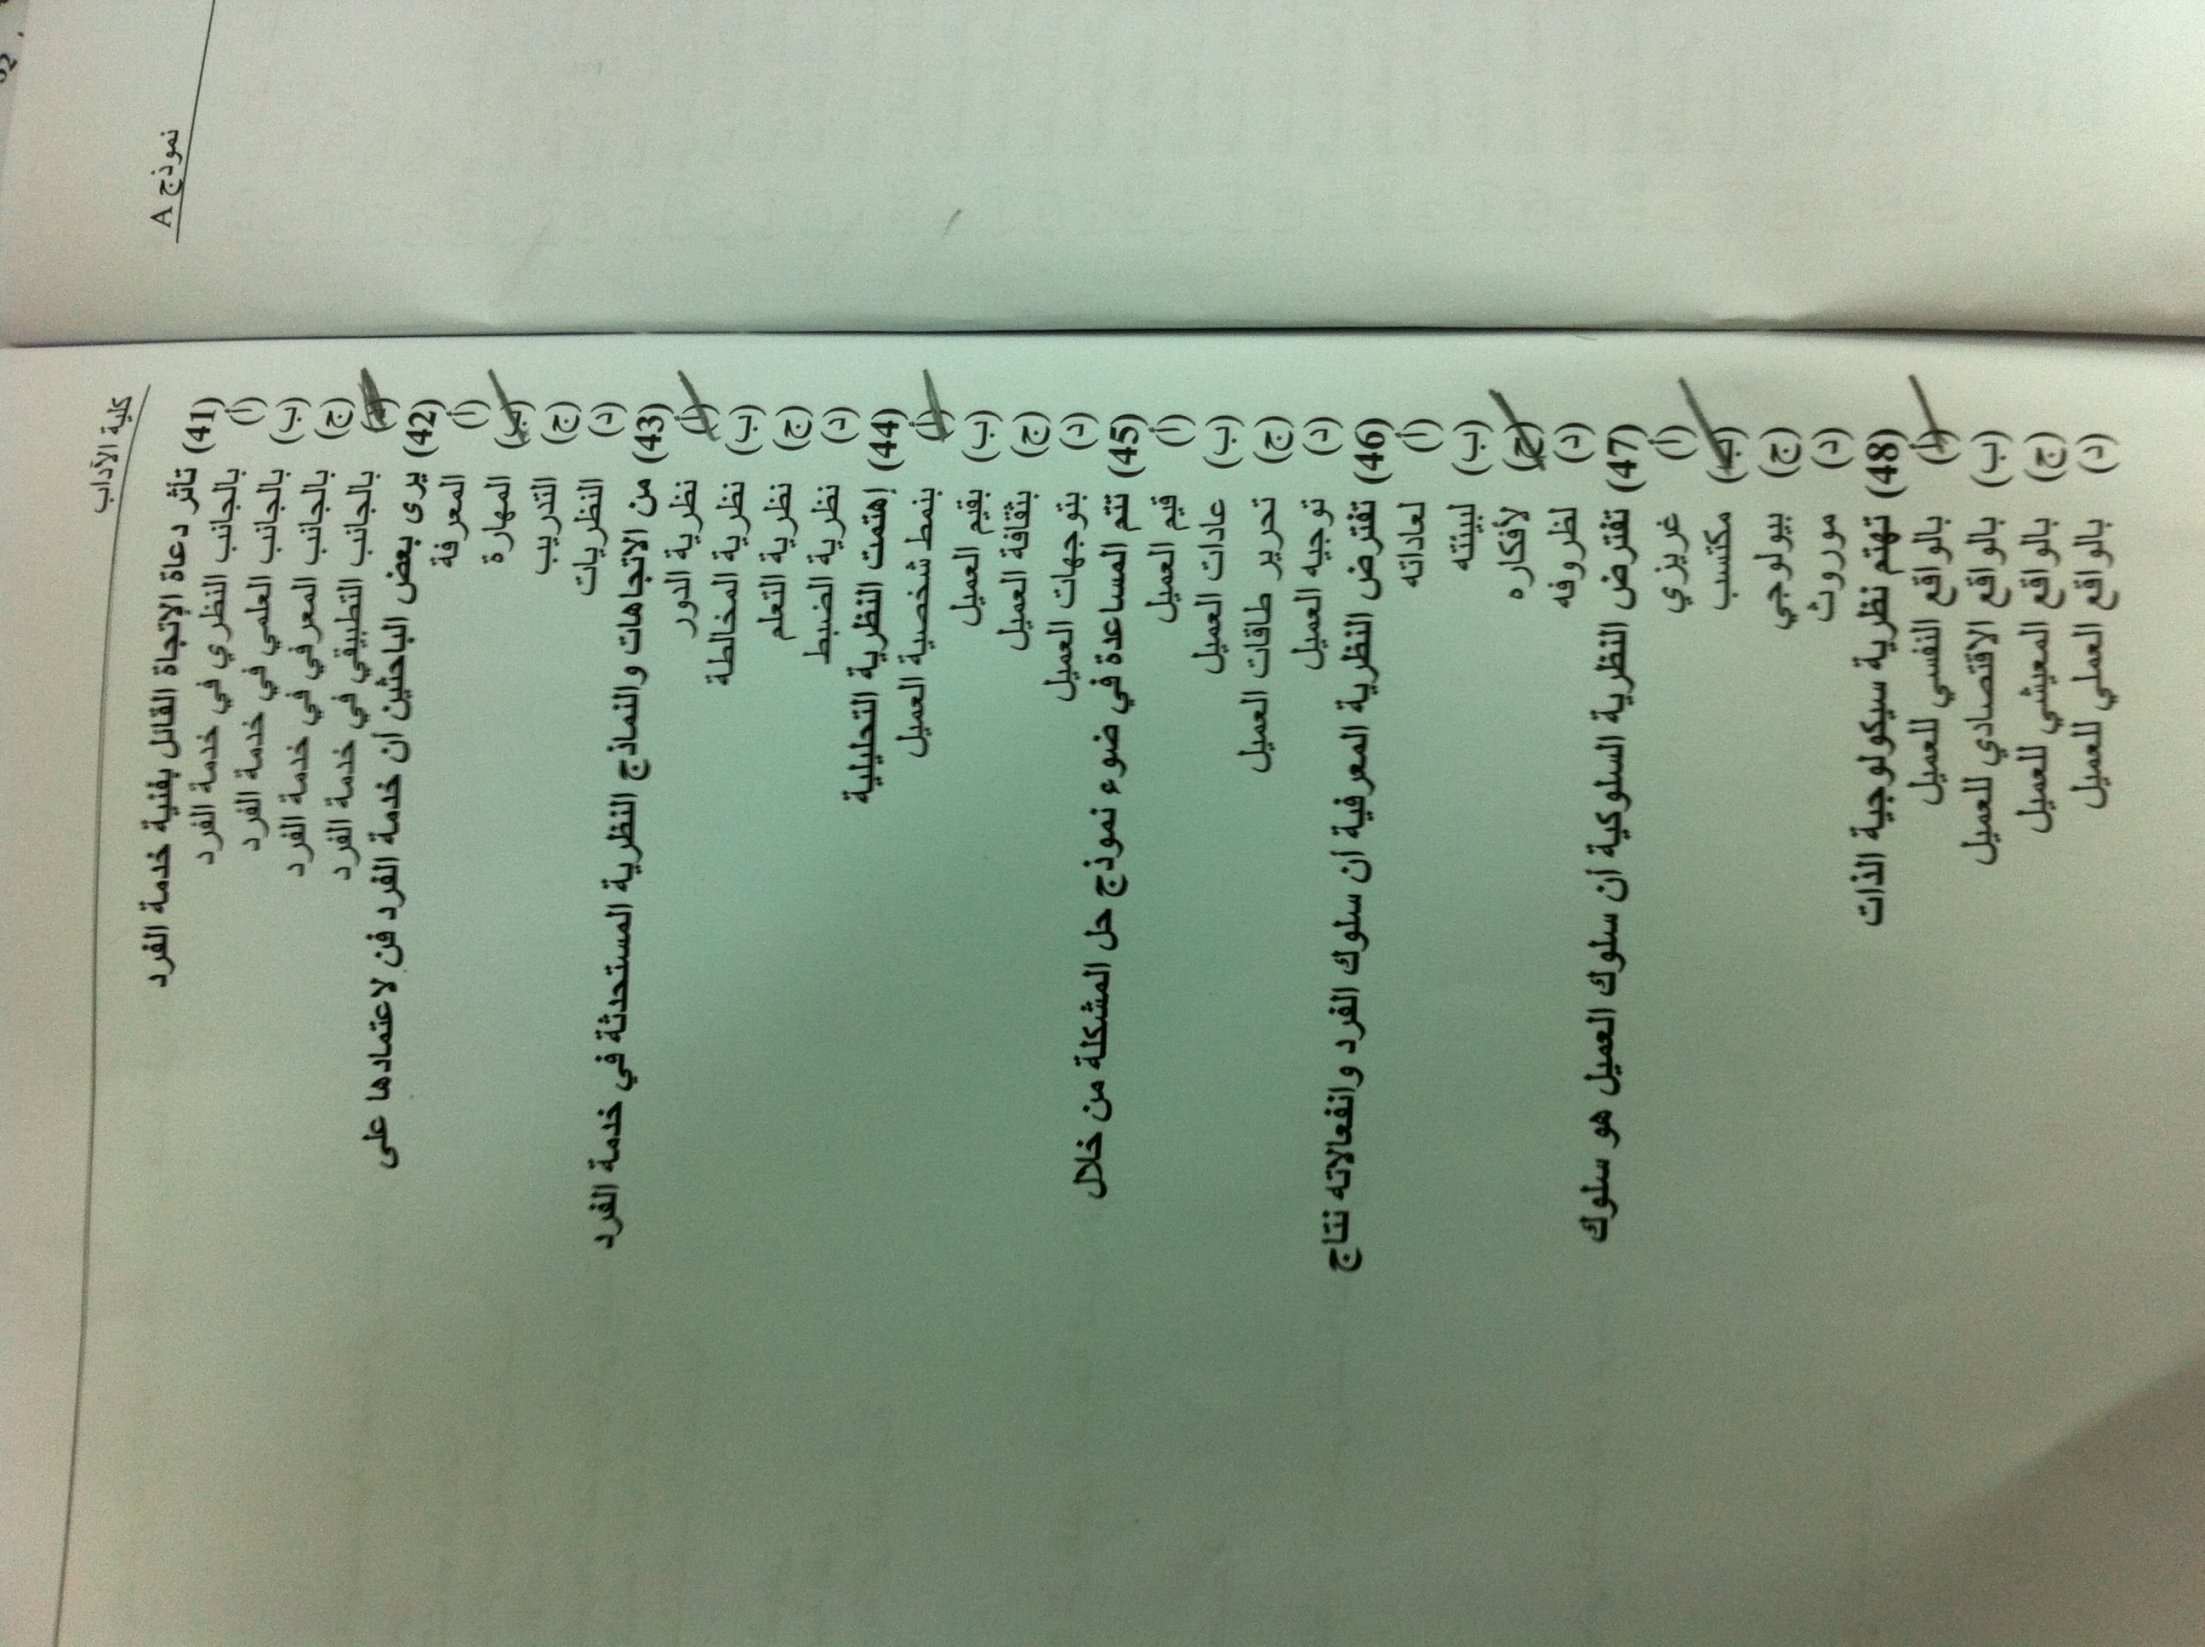 نموذج A
كلية الآداب
(41) تأثر دعاة الإتجاة القائل بفنية خدمة الفرد
(أ) بالجانب النظري في خدمة الفرد
(ب) بالجانب العلمي في خدمة الفرد
(ج) بالجانب المعرفي في خدمة الفرد
(د) بالجانب التطبيقي في خدمة الفرد
(42) يرى بعض الباحثين أن خدمة الفرد فن لاعتمادها على
(أ) المعرفة
(ب) المهارة
(ج) التدريب
(د) النظريات
(43) من الاتجاهات والنماذج النظرية المستحدثة في خدمة الفرد
(أ) نظرية الدور
(ب) نظرية المخالطة
(ج) نظرية التعلم
(د) نظرية الضبط
(44) إهتمت النظرية التحليلية
(أ) بنمط شخصية العميل
(ب) بقيم العميل
(ج) بثقافة العميل
(د) بتوجهات العميل
(45) تتم المساعدة في ضوء نموذج حل المشكلة من خلال
(أ) قيم العميل
(ب) عادات العميل
(ج) تحرير طاقات العميل
(د) توجيه العميل
(46) تفترض النظرية المعرفية أن سلوك الفرد وانفعالاته نتاج
(أ) لعاداته
(ب) لبيئته
(ج) لأفكاره
(د) لظروفه
(47) تفترض النظرية السلوكية أن سلوك العميل هو سلوك
(أ) غريزي
(ب) مكتسب
(ج) بيولوجي
(د) موروث
(48) تهتم نظرية سيكولوجية الذات
(أ) بالواقع النفسي للعميل
(ب) بالواقع الاقتصادي للعميل
(ج) بالواقع المعيشي للعميل
(د) بالواقع العملي للعميل